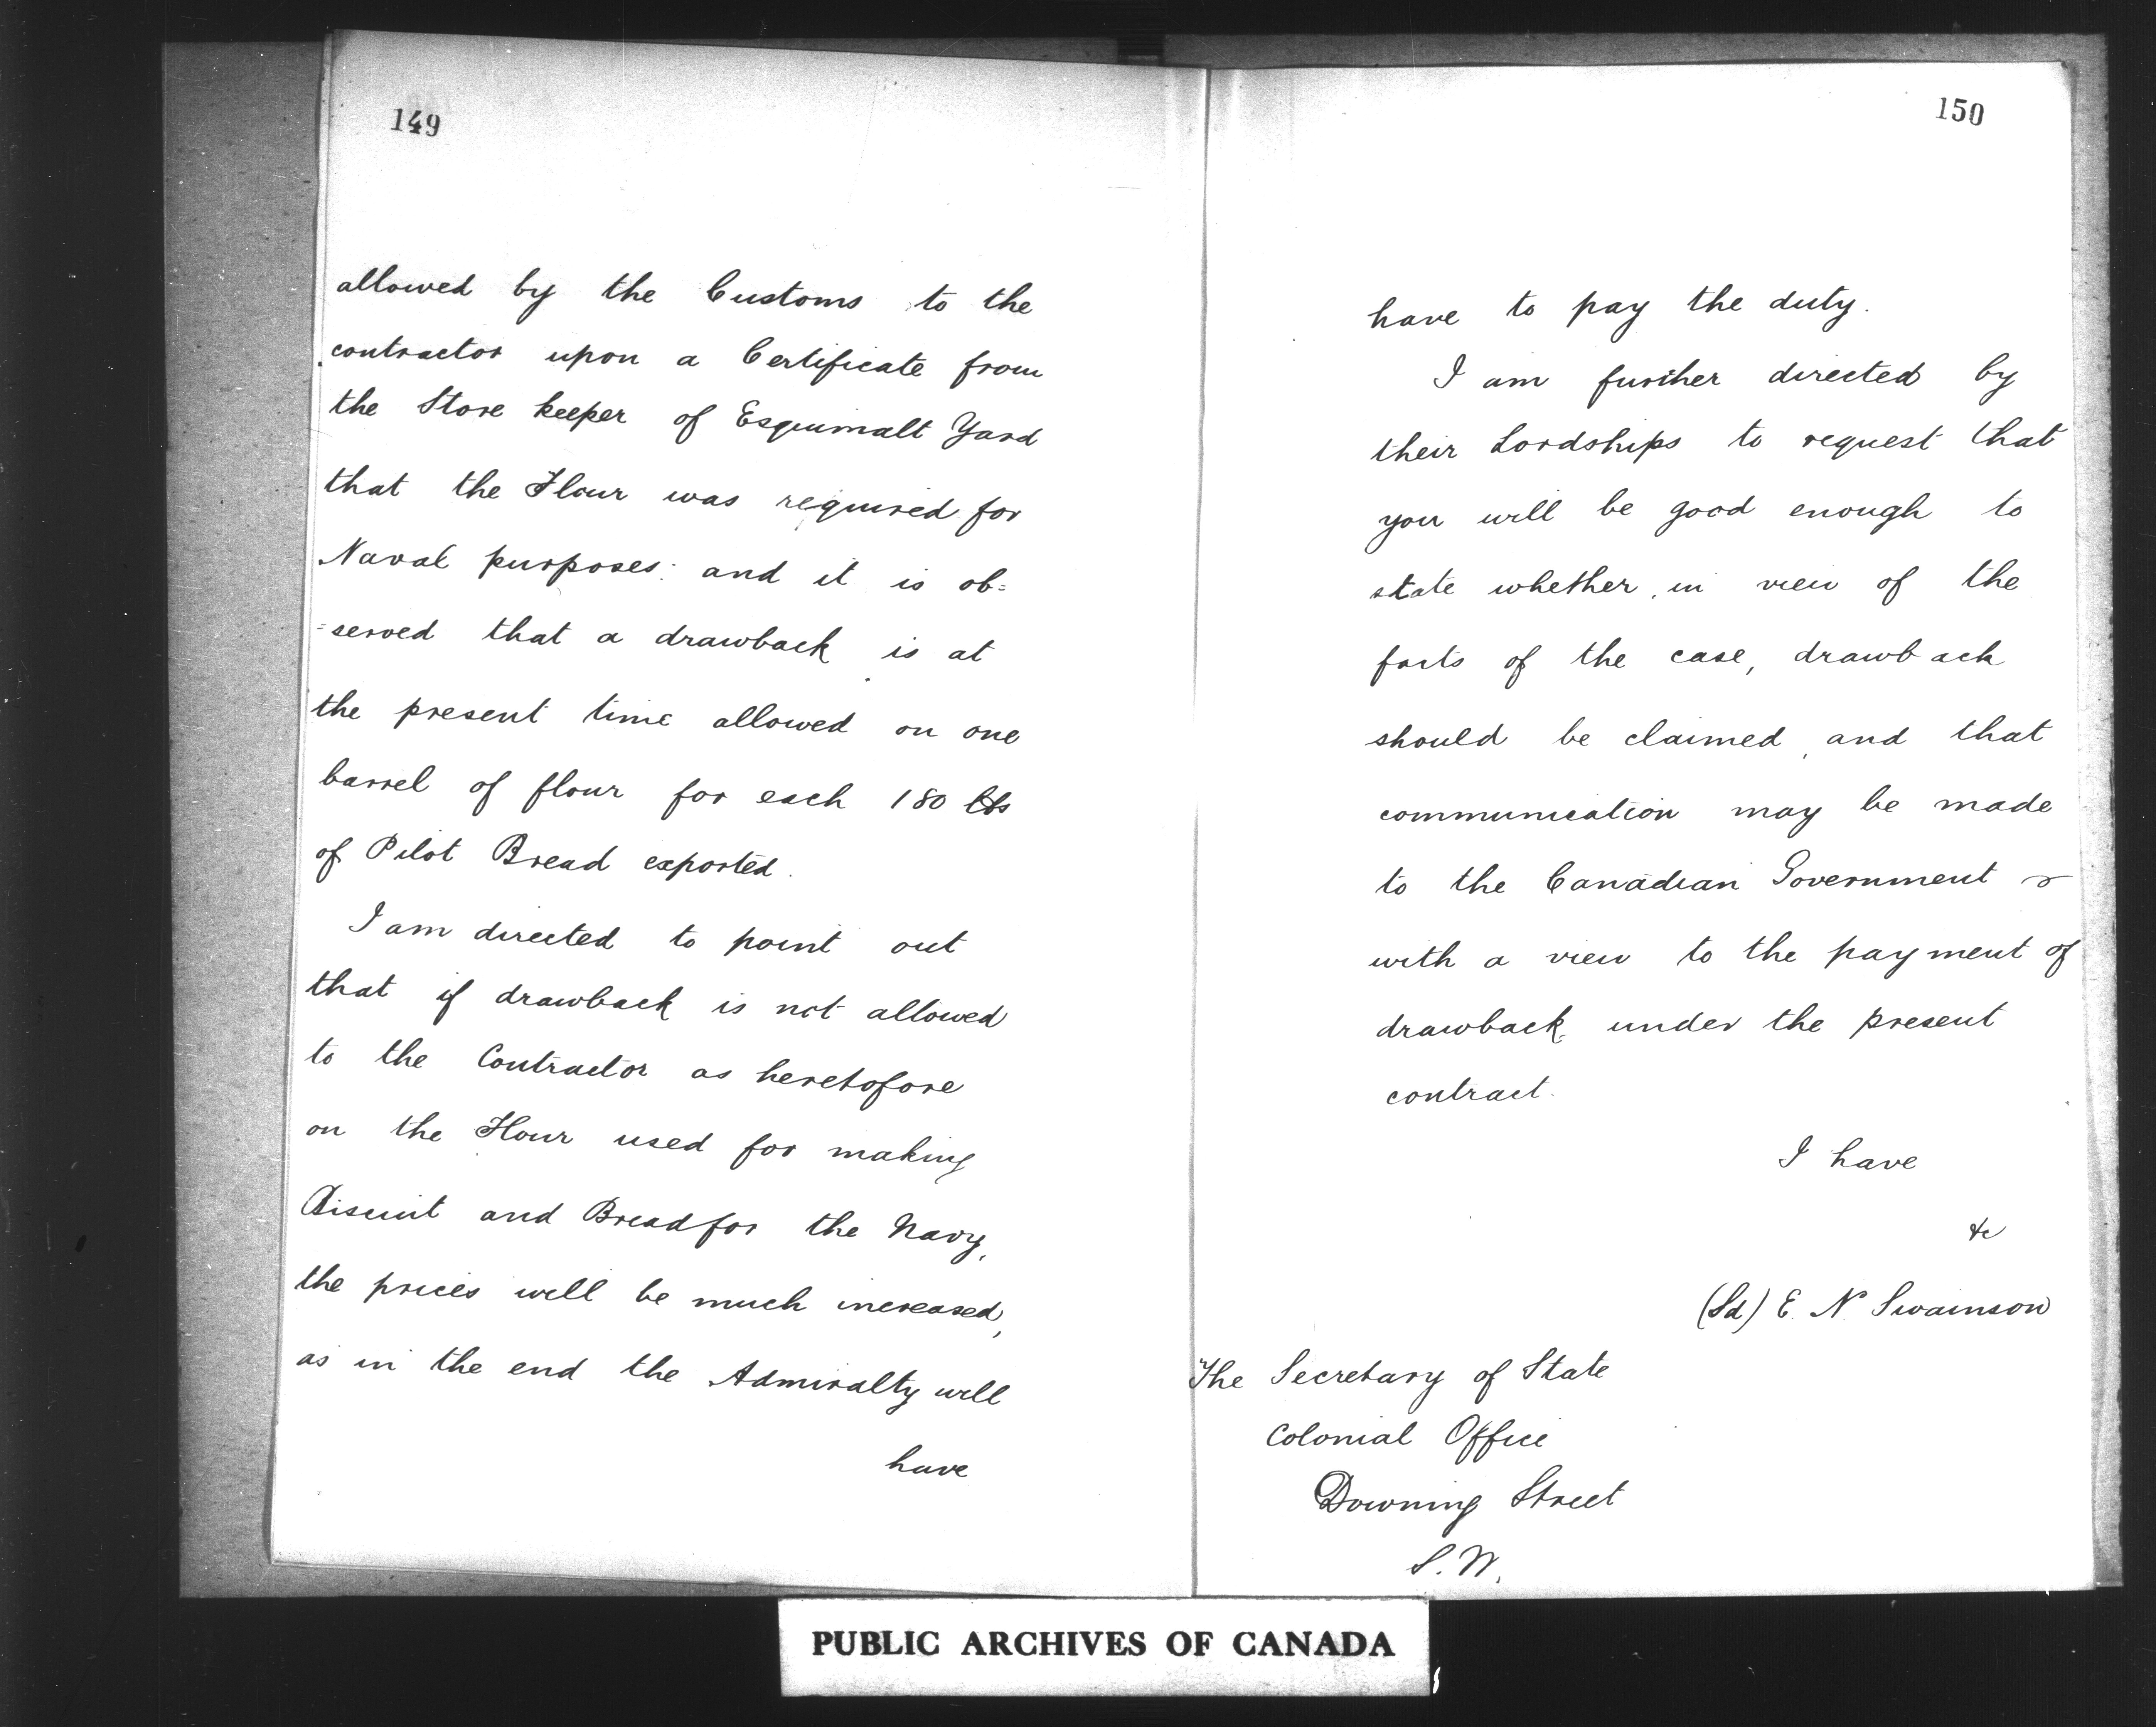 149
allowed by the Customs to the
contractor upon a Certificate from
the Store keeper of Esquimalt Yard
that the Flour was required for
Naval purposes: and it is ob=
=served that a drawback is at
the present time allowed on one
barrel of flour for each 180 lbs
of Pilot Bread exported.
I am directed to point out
that if drawback is not allowed
to the Contractor as heretofore
on the Flour used for making
Biscuit and Bread for the Navy,
the prices will be much increased,
as in the end the Admiralty will
have
150
have to pay the duty.
I am further directed by
their Lordships to request that
you will be good enough to
state whether, in view of the
facts of the case, drawback
should be claimed, and that
communication may be made
to the Canadian Government
with a view to the payment of
drawback under the present
contract.
I have
&c
(Sd) E. N Swainson
The Secretary of State
Colonial Office
Downing Street
S.W.
PUBLIC ARCHIVES OF CANADA